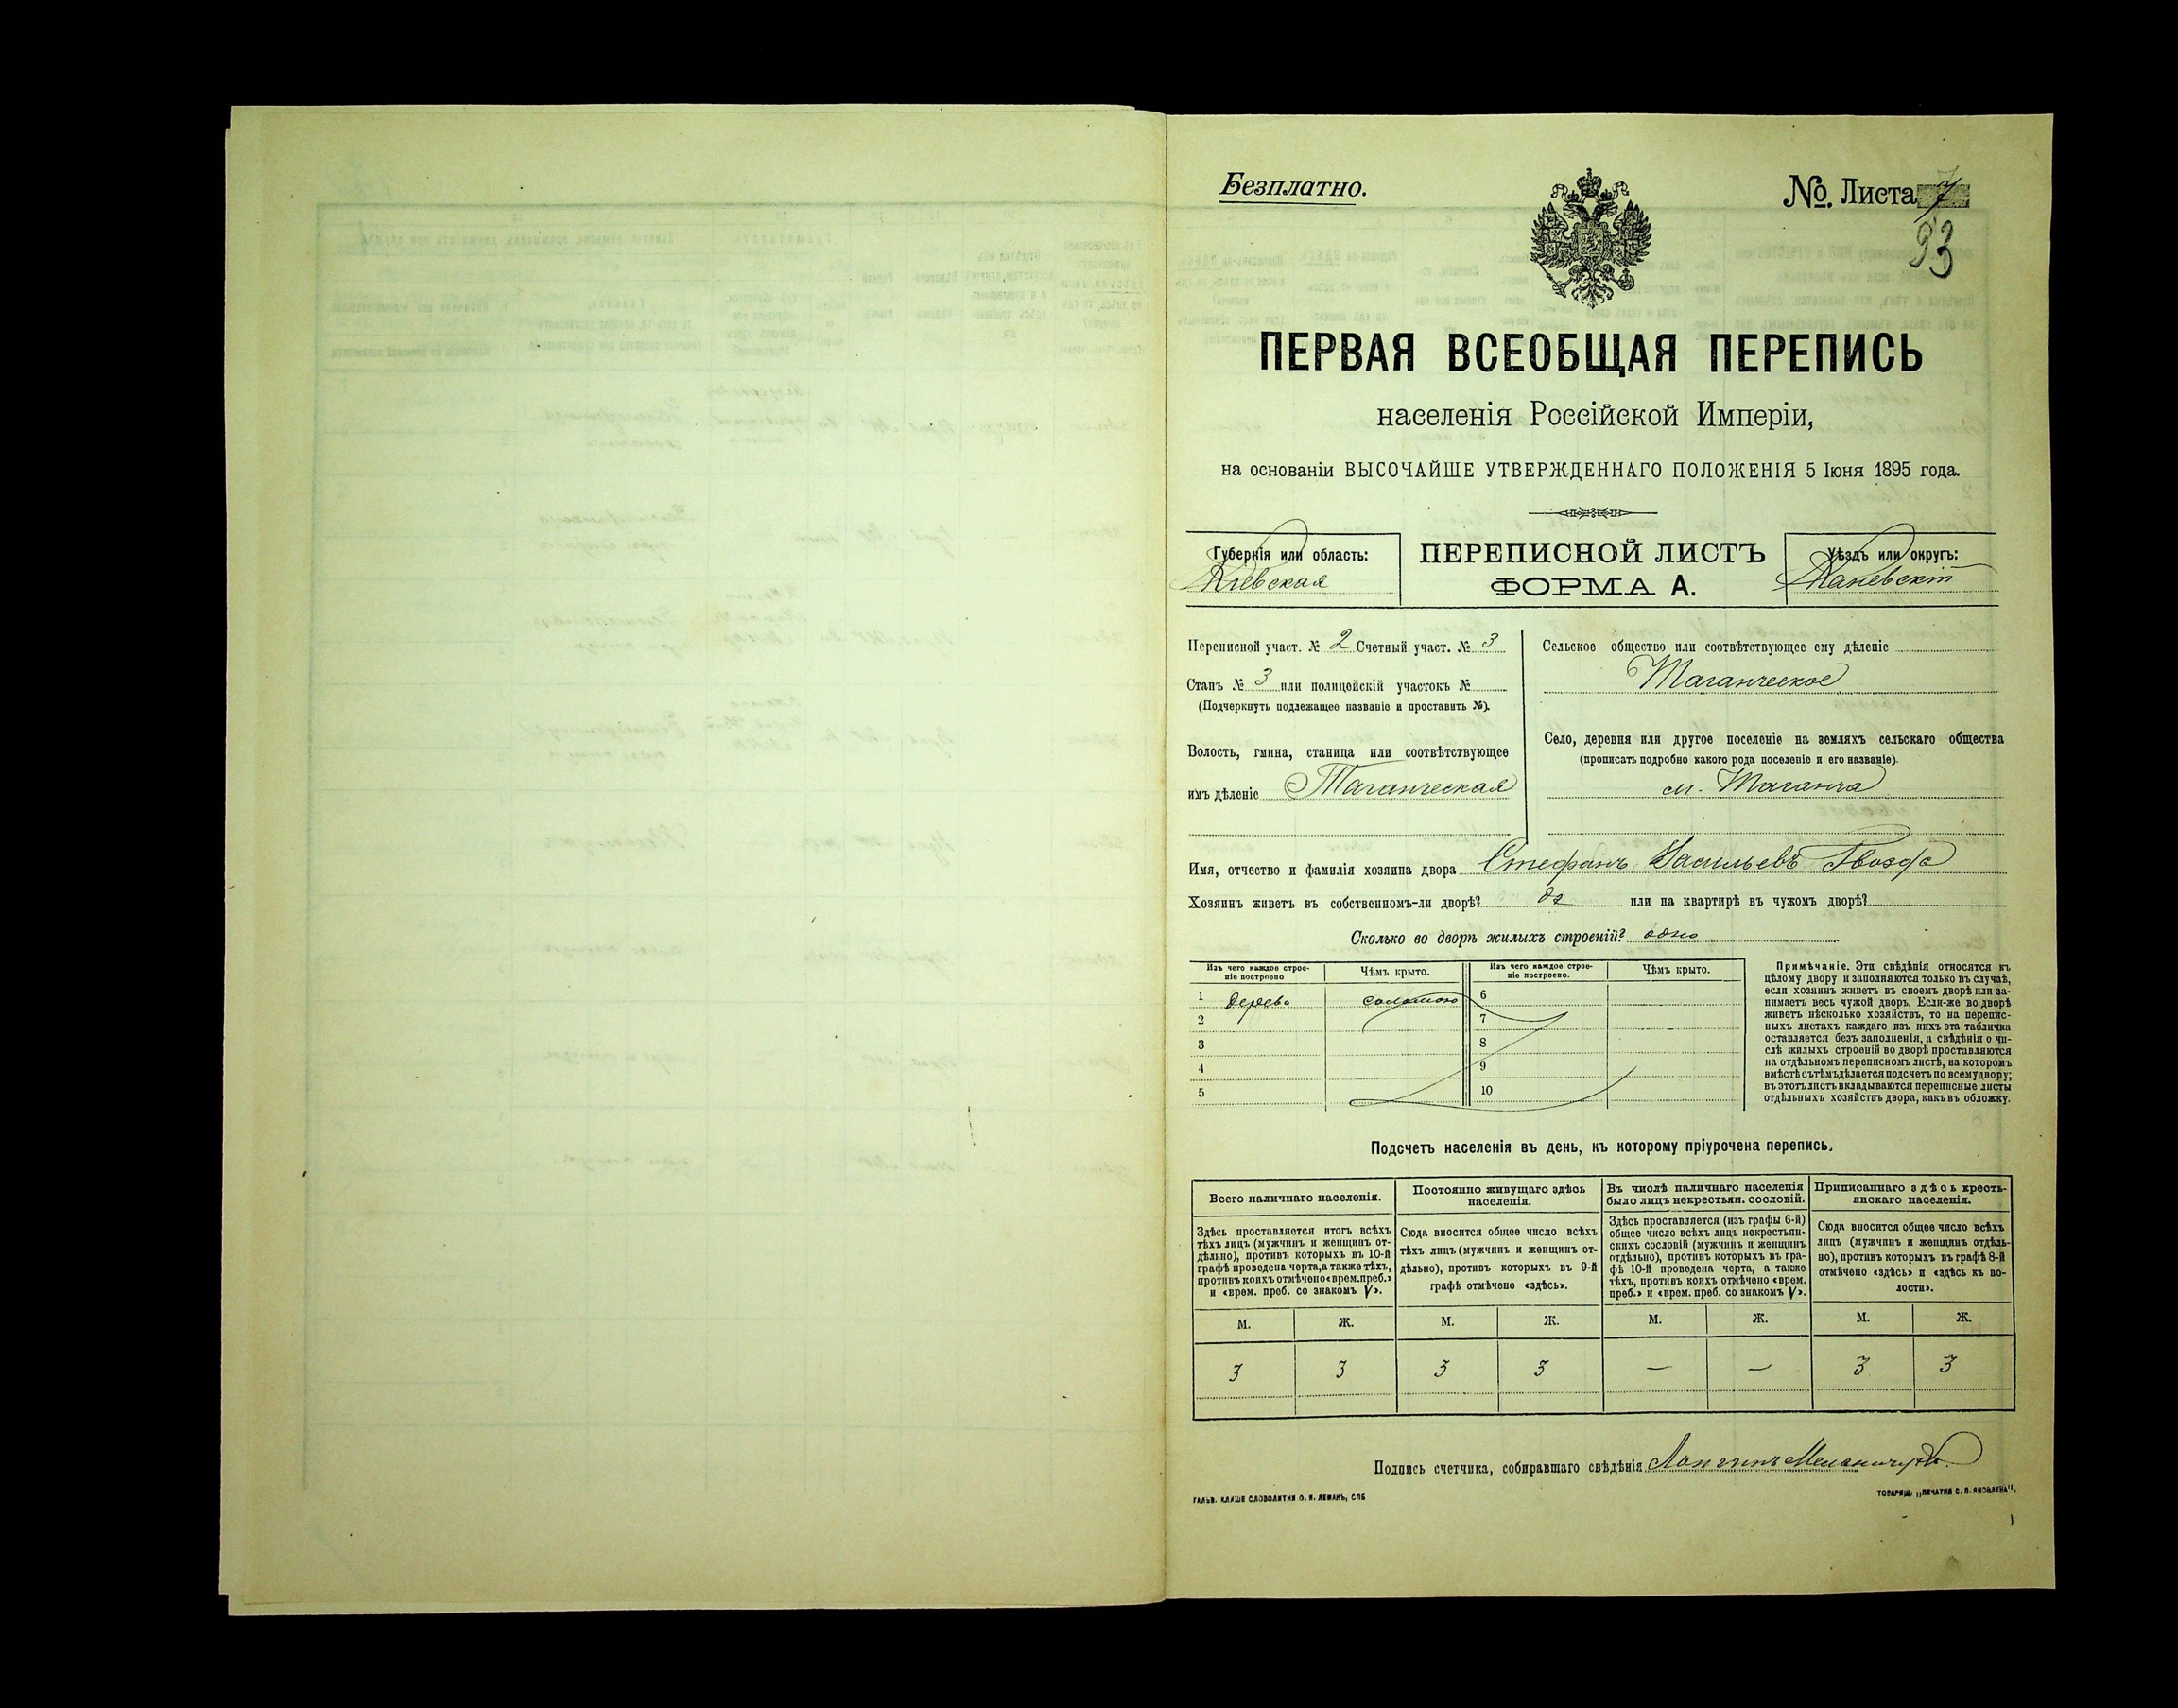 Безплатно.
№. Листа 7
93
ПЕРВАЯ ВСЕОБЩАЯ ПЕРЕПИСЬ
населенія Россійской Имперіи,
на основаніи ВЫСОЧАЙШЕ УТВЕРЖДЕННАГО ПОЛОЖЕНІЯ 5 Іюня 1895 года.
Губернія или область:
Кіевская
ПЕРЕПИСНОЙ ЛИСТЪ
ФОРМА А.
Уѣздъ или округъ:
Каневскій
Переписной участ. № 2 Счетный участ. № 3
Станъ № 3 или полицейскій участокъ №
(Подчеркнуть подлежащее названіе и проставить №).
Волость, гмина, станица или соотвѣтствующее
имъ дѣленіе Таганческая
Сельское общество или соотвѣтствующее ему дѣленіе
Таганческое
Село, деревня или другое поселеніе на земляхъ сельскаго общества
(прописать подробно какого рода поселеніе и его названіе).
м. Таганча
Имя, отчество и фамилія хозяина двора Стефанъ Васильевъ Гвозда
Хозяинъ живетъ въ собственномъ-ли дворѣ? да или на квартирѣ въ чужомъ дворѣ?
Сколько во дворѣ жилыхъ строеній? одно
Изъ чего каждое строе-
ніе построено
Чѣмъ крыто.
Изъ чего каждое строе-
ніе построено.
Чѣмъ крыто.
1 дерева соломою 6
2 7
3 8
4 9
5 10
Примѣчаніе. Эти свѣдѣнія относятся къ
цѣлому двору и заполняются только въ случаѣ,
если хозяинъ живетъ въ своемъ дворѣ или за-
нимаетъ весь чужой дворъ. Если-же во дворѣ
живетъ нѣсколько хозяйствъ, то на перепис-
ныхъ листахъ каждаго изъ нихъ эта табличка
оставляется безъ заполненія, а свѣдѣнія о чи-
слѣ жилыхъ строеній во дворѣ проставляются
на отдѣльномъ переписномъ листѣ, на которомъ
вмѣстѣ съ тѣмъ дѣлается подсчетъ по всему двору;
въ этотъ листъ вкладываются переписные листы
отдѣльныхъ хозяйствъ двора, какъ въ обложку.
Подсчетъ населенія въ день, къ которому пріурочена перепись.
Всего наличнаго населенія.
Здѣсь проставляется итогъ всѣхъ
тѣхъ лицъ (мужчинъ и женщинъ от-
дѣльно), противъ которыхъ въ 10-й
графѣ проведена черта, а также тѣхъ,
противъ коихъ отмѣчено «врем. преб.»
и «врем. преб. со знакомъ V».
Постоянно живущаго здѣсь
населенія.
Сюда вносится общее число всѣхъ
тѣхъ лицъ (мужчинъ и женщинъ от-
дѣльно), противъ которыхъ въ 9-й
графѣ отмѣчено «здѣсь».
Въ числѣ наличнаго населенія
было лицъ некрестьян. сословій.
Здѣсь проставляется (изъ графы 6-й)
общее число всѣхъ лицъ некрестьян-
скихъ сословій (мужчинъ и женщинъ
отдѣльно), противъ которыхъ въ гра-
фѣ 10-й проведена черта, а также
тѣхъ, противъ коихъ отмѣчено «врем.
преб.» и «врем. преб. со знакомъ V».
Приписаннаго здѣсь кресть-
янскаго населенія.
Сюда вносится общее число всѣхъ
лицъ (мужчинъ и женщинъ отдѣль-
но), противъ которыхъ въ графѣ 8-й
отмѣчено «здѣсь» и «здѣсь къ во-
лости».
М. Ж. М. Ж. М. Ж. М. Ж.
3 3 3 3 — — 3 3
Подпись счетчика, собиравшаго свѣдѣнія
ГАЛЬВ. КЛИШЕ СЛОВОЛИТНИ О. И. ЛЕМАНЪ, СПБ
ТОВАРИЩ. „ПЕЧАТНЯ С. П. ЯКОВЛЕВА“,